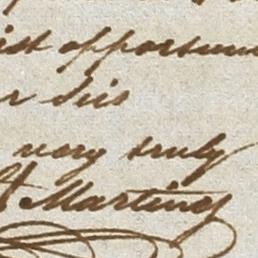 opportun
r Sir
very truly
Martinez